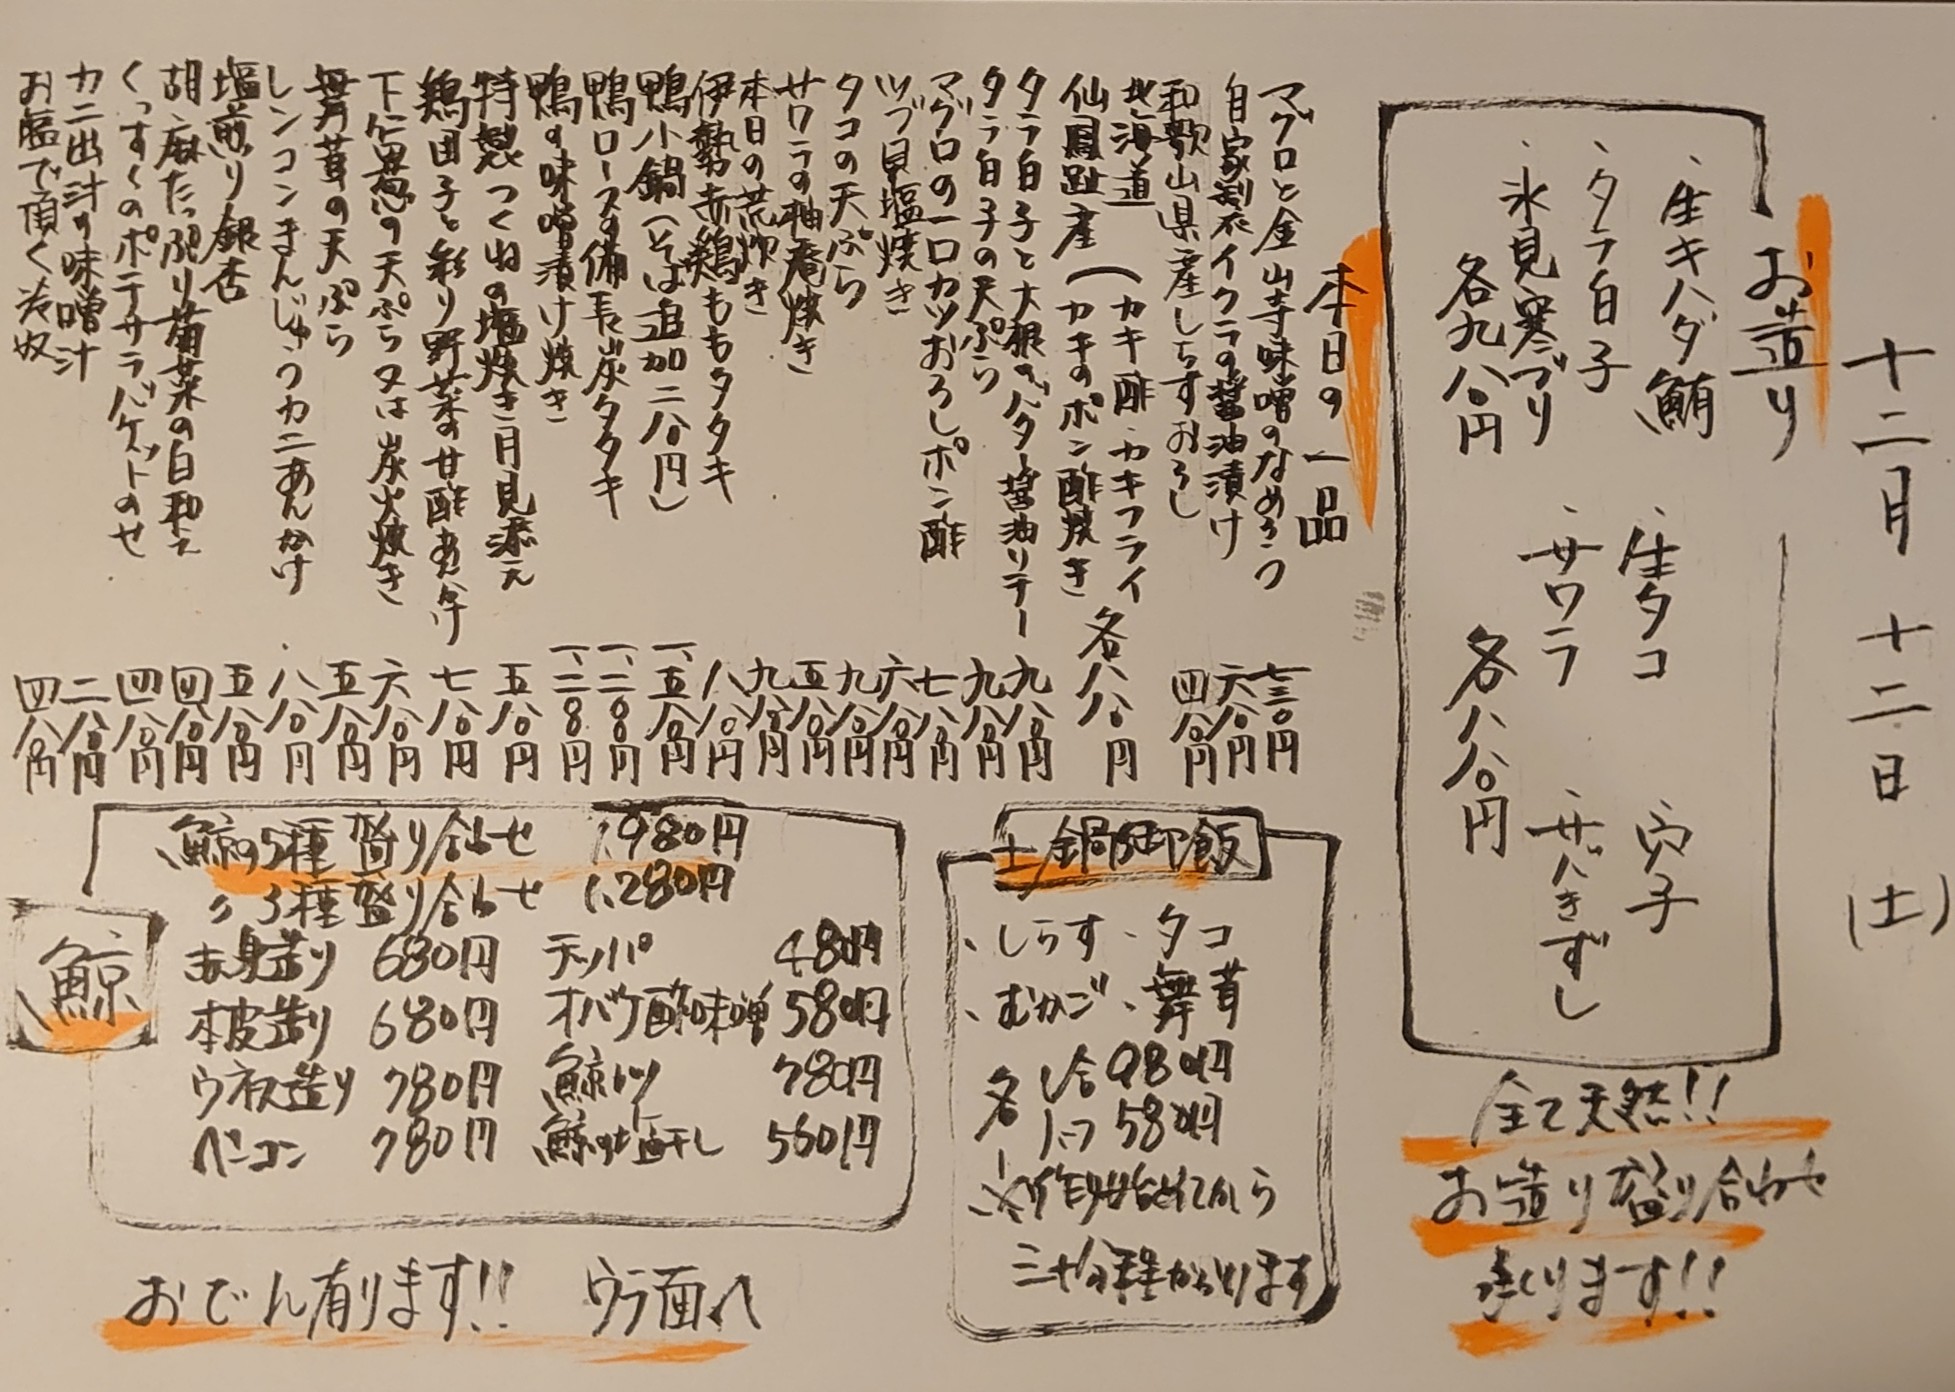 十二月十二日(土)
お造り
・生キハダ鮪
・タラ白子
・氷見寒ブリ
各九八〇円
・生タコ
・サワラ
・穴子
・サバきずし
各八八〇円
全て天然!!
お造り盛り合わせ
承ります!!
本日の一品
マグロと金山寺味噌のなめろう 七三〇円
自家製イクラの醤油漬け 六八〇円
和歌山県産しらすおろし 四八〇円
北海道仙鳳趾産(カキ酢・カキフライ
カキのポン酢焼き 各八八〇円
タラ白子と大根のバター醤油ソテー 九八〇円
タラ白子の天ぷら 九八〇円
マグロの一口カツおろしポン酢 七八〇円
ツブ貝塩焼き 六八〇円
タコの天ぷら 九八〇円
サワラの柚庵焼き 五八〇円
本日の荒炊き 九八〇円
伊勢赤鶏ももタタキ 八八〇円
鴨小鍋(そば追加二八〇円) 一、五八〇円
鴨ロースの備長炭タタキ 一、二〇〇円
鴨の味噌漬け焼き 一、二八〇円
特製つくねの塩焼き月見添え 五八〇円
鶏団子と彩り野菜の甘酢あんかけ 七八〇円
下仁田葱の天ぷら又は炭火焼き 六八〇円
舞茸の天ぷら 五八〇円
レンコンまんじゅうカニあんかけ 八八〇円
塩煎り銀杏 五八〇円
胡麻たっぷり菊菜の白和え 四八〇円
くっすくのポテサラバゲットのせ 四八〇円
カニ出汁の味噌汁 二八〇円
お塩で頂く冷奴 四八〇円
土鍋御飯
・しらす ・タコ
・むかご ・舞茸
各 1合 980円
1/2 580円
※作り始めてから
三十分程かかります
鯨
鯨の5種盛り合わせ 1,980円
〃 3種盛り合わせ 1,280円
赤身造り 680円 テッパ 480円
本皮造り 680円 オバケ酢味噌 580円
ウネス造り 780円 鯨カツ 780円
ベーコン 780円 鯨の塩干し 560円
おでん有ります!! ウラ面へ